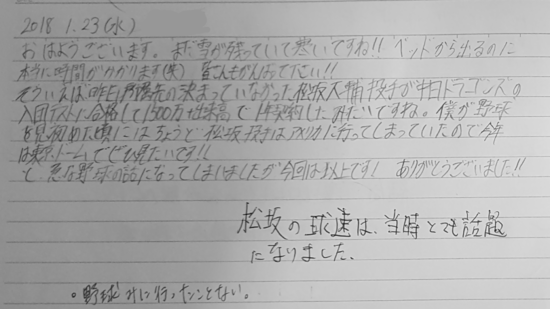 2018 1.23(水)
おはようございます。まだ雪が残っていて寒いですね!! ベッドから出るのに
本当に時間がかかります(笑) 皆さんもがんばって下さい!!
そういえば昨日所属先の決まっていなかった松坂大輔投手が中日ドラゴンズの
入団テストに合格して1500万+出来高で1年契約したみたいですね。僕が野球
を見初めた頃にはちょうど松坂投手はアメリカに行ってしまっていたので今年
は東京ドームでぜひ見たいです!!
と、急な野球の話になってしまいましたが今回は以上です! ありがとうございました!!
松坂の球速は、当時とても話題
になりました。
。野球みに行ったことない。